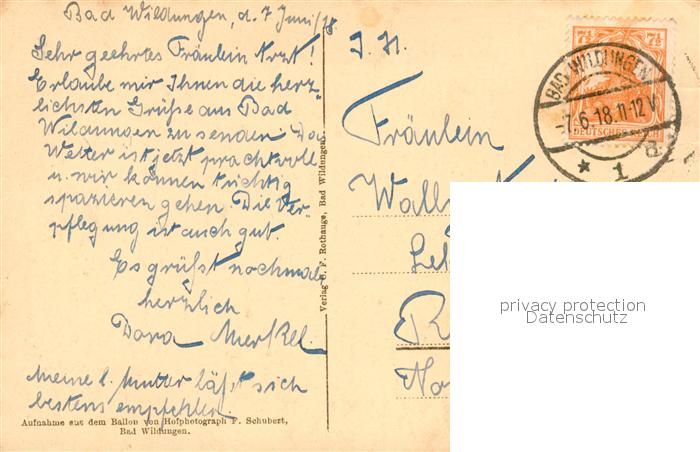 Bad Wildungen, d. 7 Juni/18
Sehr geehrtes Fräulein Arzt!
Erlaube mir Ihnen die herz
lichsten Grüße aus Bad
Wildungen zu senden. Das
Wetter ist jetzt prachtvoll
u. wir können tüchtig
spazieren gehen. Die Ver
pflegung ist auch gut.
Es grüßt nochmals
herzlich
Dora Merkel.
Meine l. Mutter läßt sich
bestens empfehlen.
Aufnahme aus dem Ballon von Hofphotograph F. Schubert,
Bad Wildungen.
Verlag C. F. Rothauge, Bad Wildungen.
I. H.
Fräulein
7½ 7½
DEUTSCHES
BAD WILDUNGEN
-7.6.18.11-12V
* 1 a.
privacy protection
Datenschutz